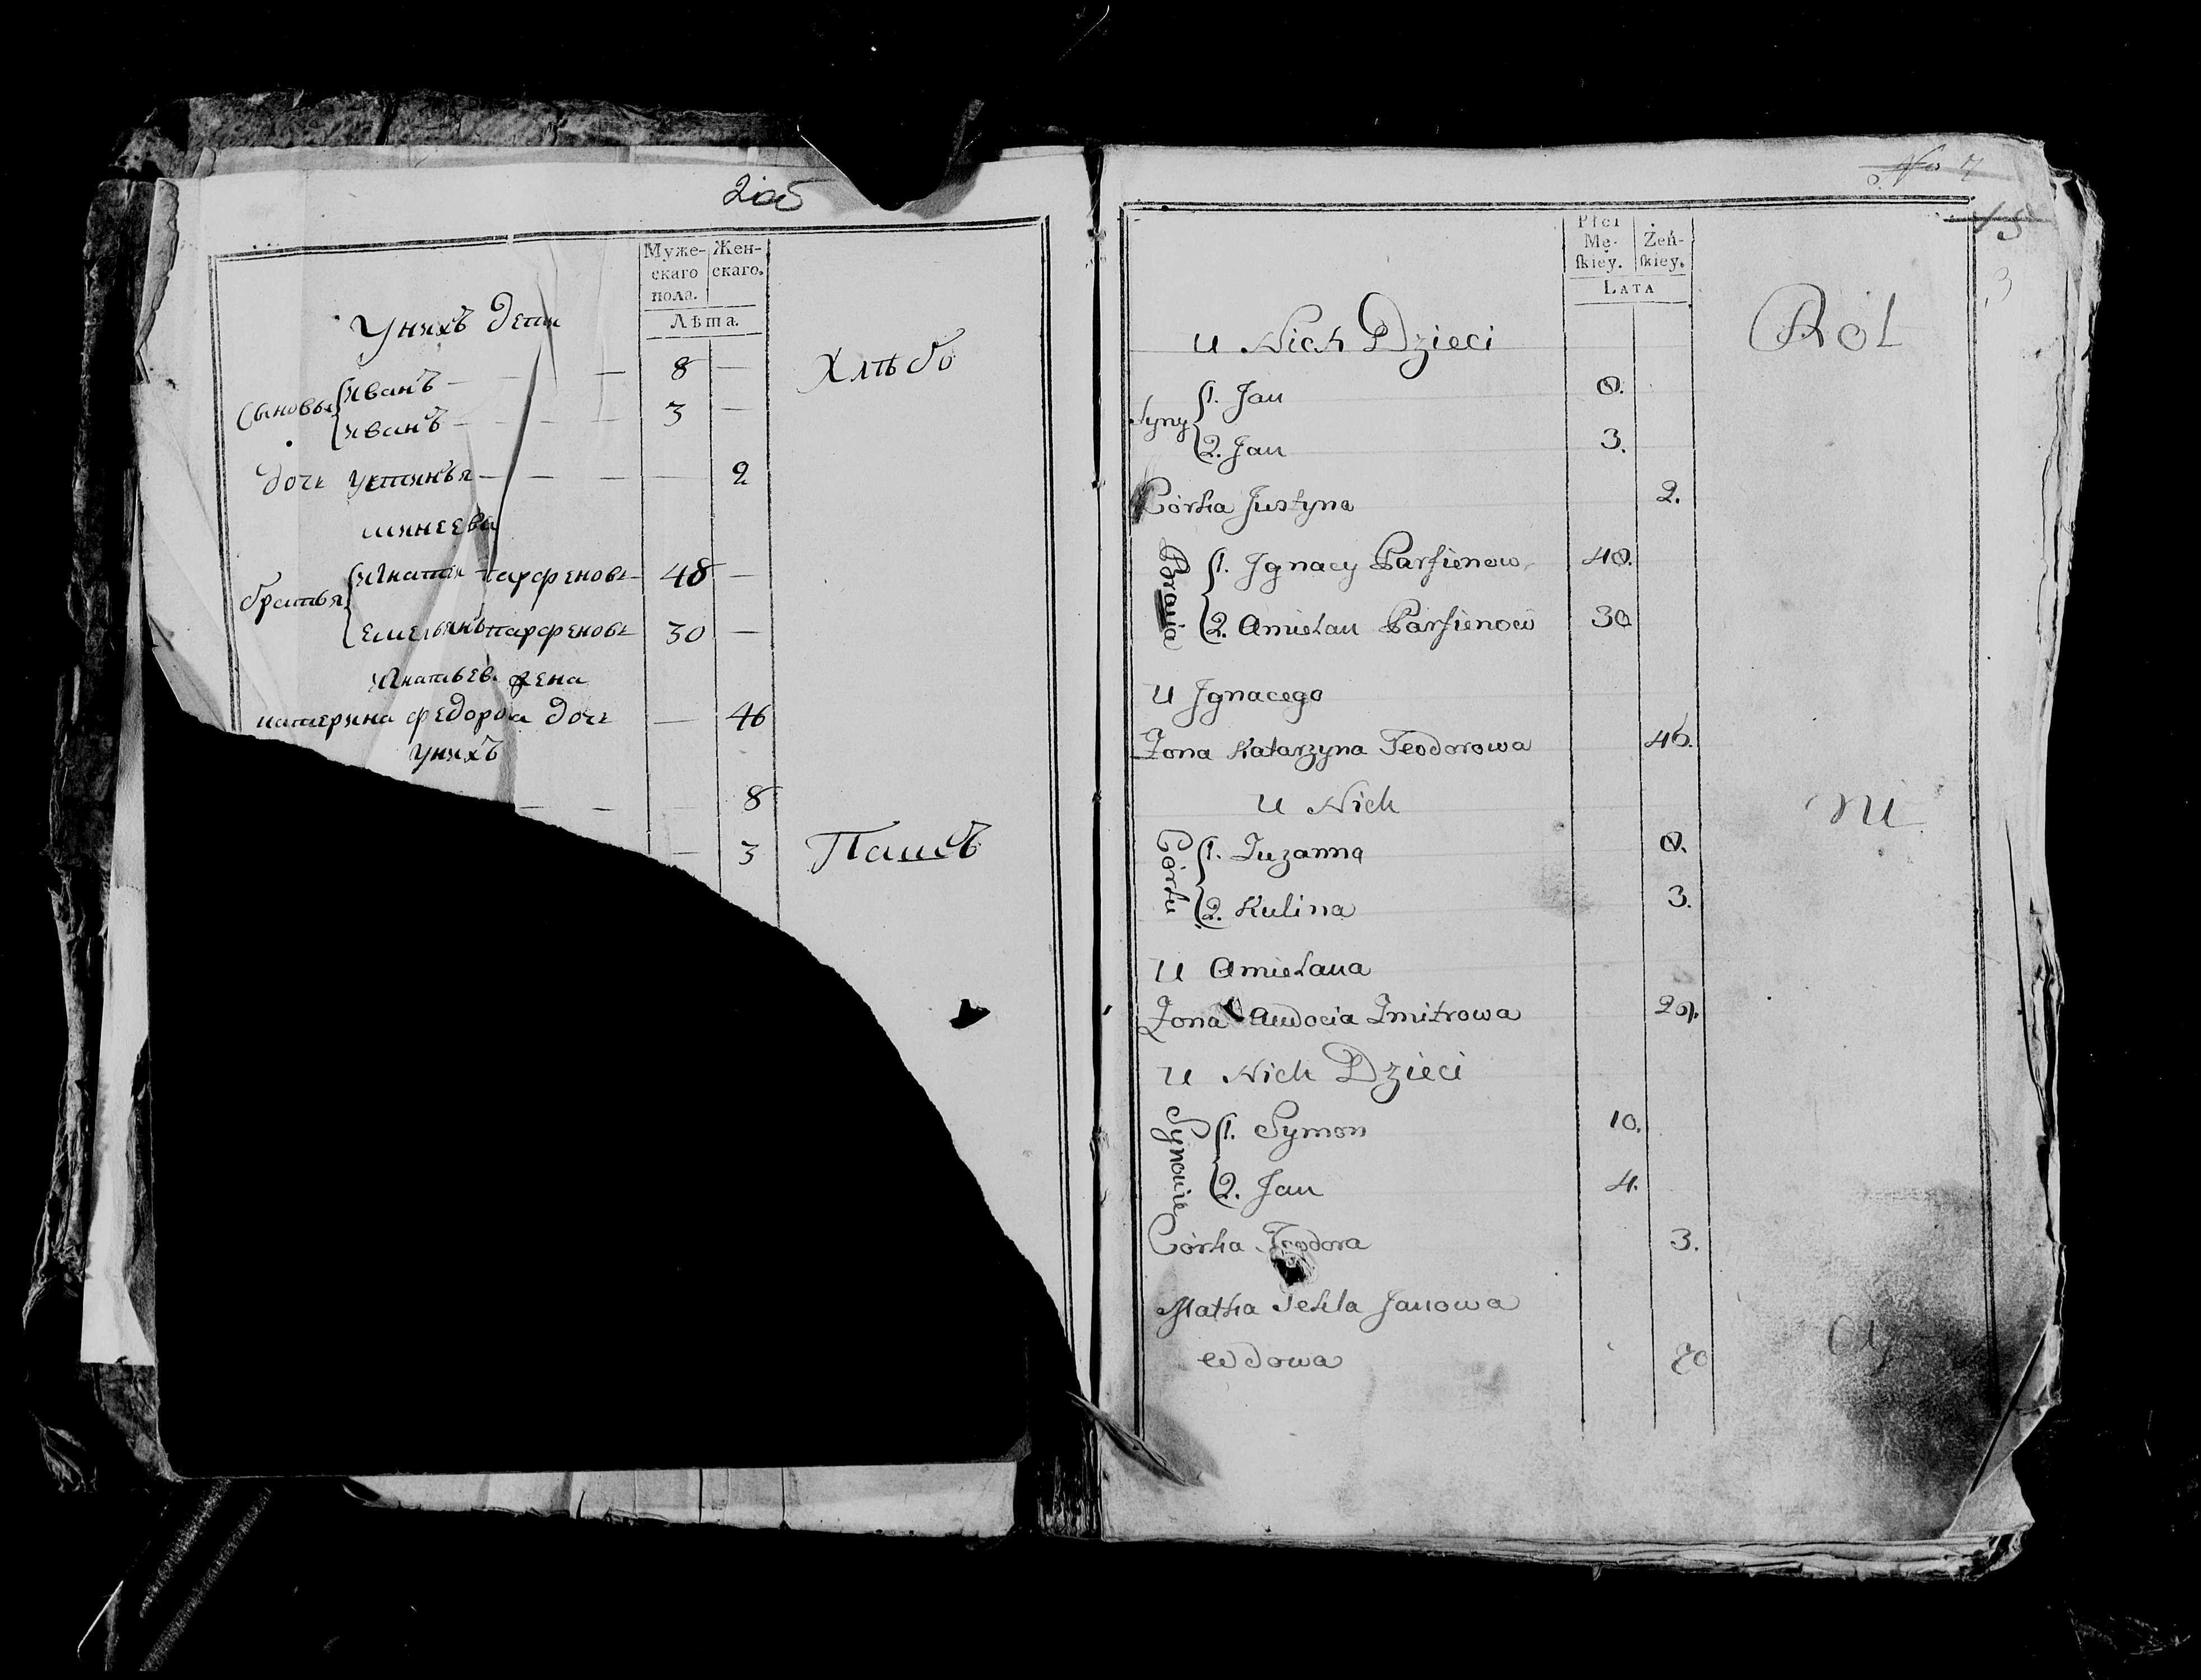 205
Муже-
скаго
пола.
Жен-
скаго.
Лѣта.
Унихъ дети
Хлѣбо
Сыновья
Иванъ 8
Иванъ 3
дочь Устинья 2
братья
Игнатъ парфеновъ 48
Емельянъ парфеновъ 30
Игнатьева жена
катерина федорова дочь 46
Унихъ
8
3
Пашъ
No 7
Płci
Mę-
ſkiey.
Żeń-
ſkiey.
LATA
Rol
U Nich Dzieci
Syny
1. Jan 8.
2. Jan 3.
Córka Justyna 2.
Bracia
1. Jgnacy Parfienow 48.
2. Amielan Parfienow 30
U Jgnacego
Żona Katarzyna Teodorowa 46.
U Nich
ni
Córki
1. Zuzanna 8.
2. Kulina 3.
U Amielana
Żona Audocia Zmitrowa 29.
U Nich Dzieci
Synowie
1. Symon 10.
2. Jan 4.
Córka Teodora 3.
Matka Tekla Janowa
wdowa 70
cy